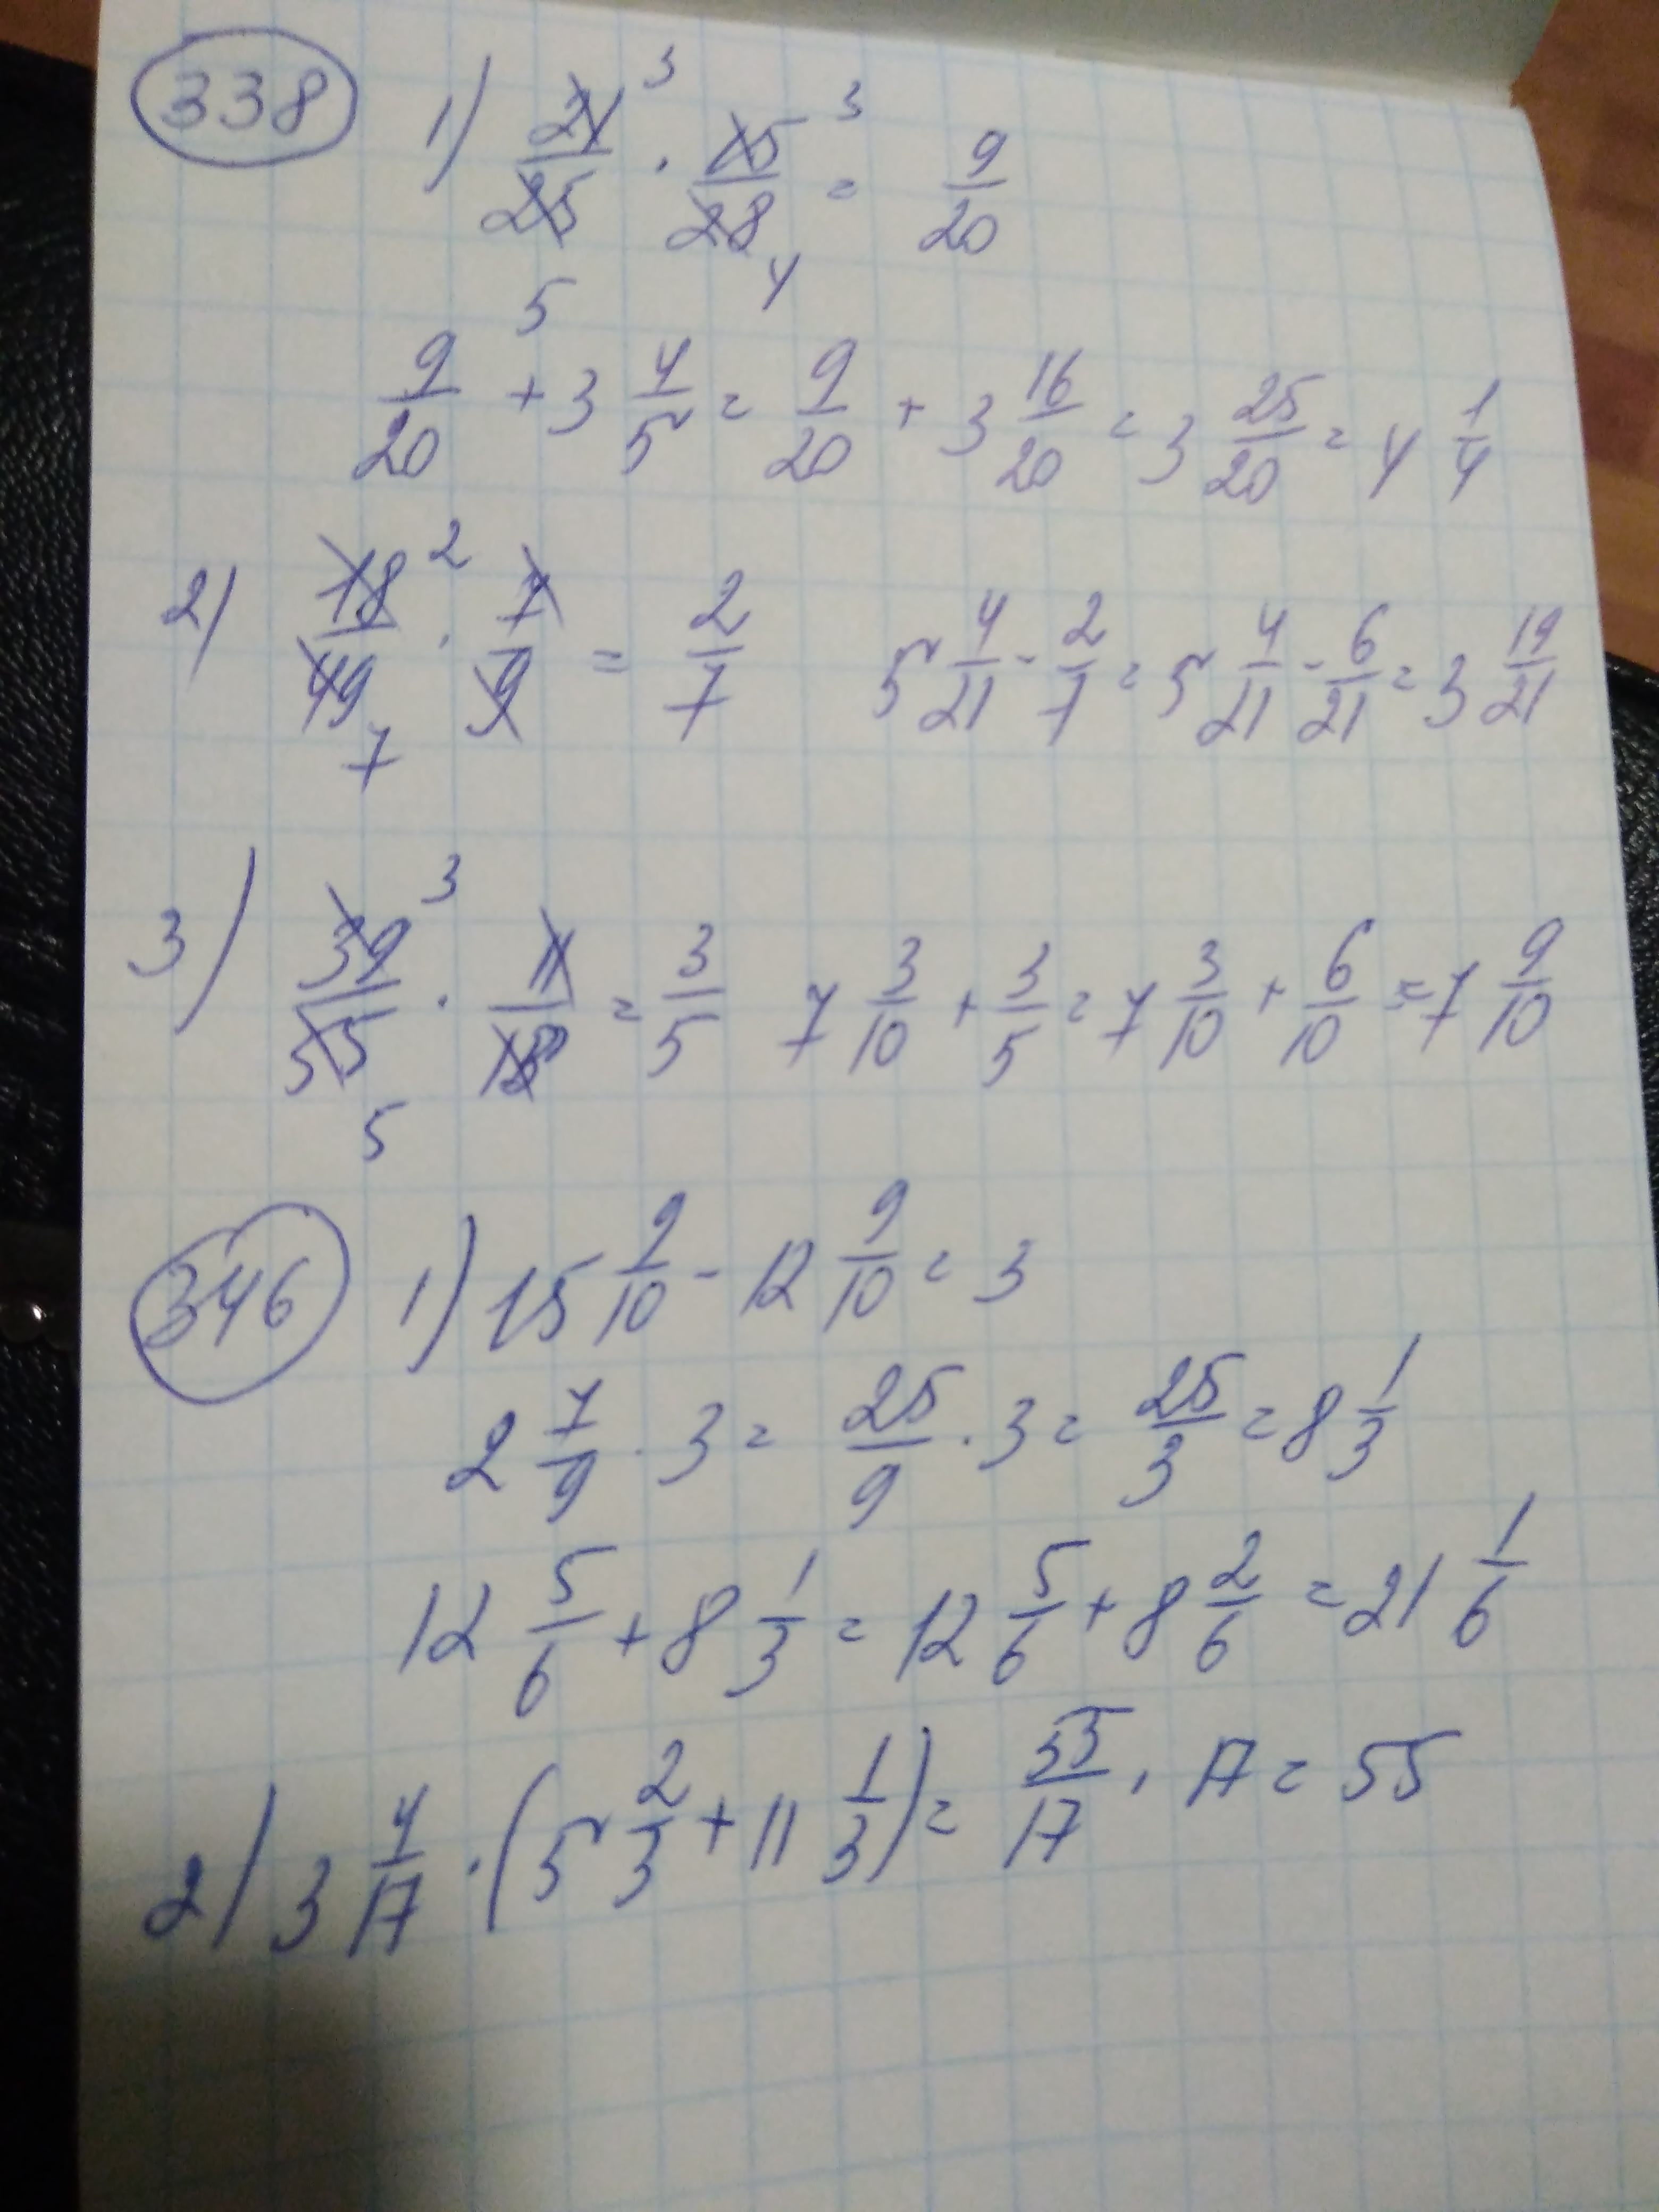 338 1) 21/25 3 5 · 15/28 3 4 = 9/20
9/20 + 3 4/5 = 9/20 + 3 16/20 = 3 25/20 = 4 1/4
2) 18/49 2 7 · 7/9 = 2/7 5 4/21 - 2/7 = 5 4/21 - 6/21 = 3 19/21
3) 39/55 3 5 · 11/13 = 3/5 7 3/10 + 3/5 = 7 3/10 + 6/10 = 7 9/10
346 1) 15 9/10 - 12 9/10 = 3
2 7/9 · 3 = 25/9 · 3 = 25/3 = 8 1/3
12 5/6 + 8 1/3 = 12 5/6 + 8 2/6 = 21 1/6
2) 3 4/17 · (5 2/3 + 11 1/3) = 55/17 · 17 = 55